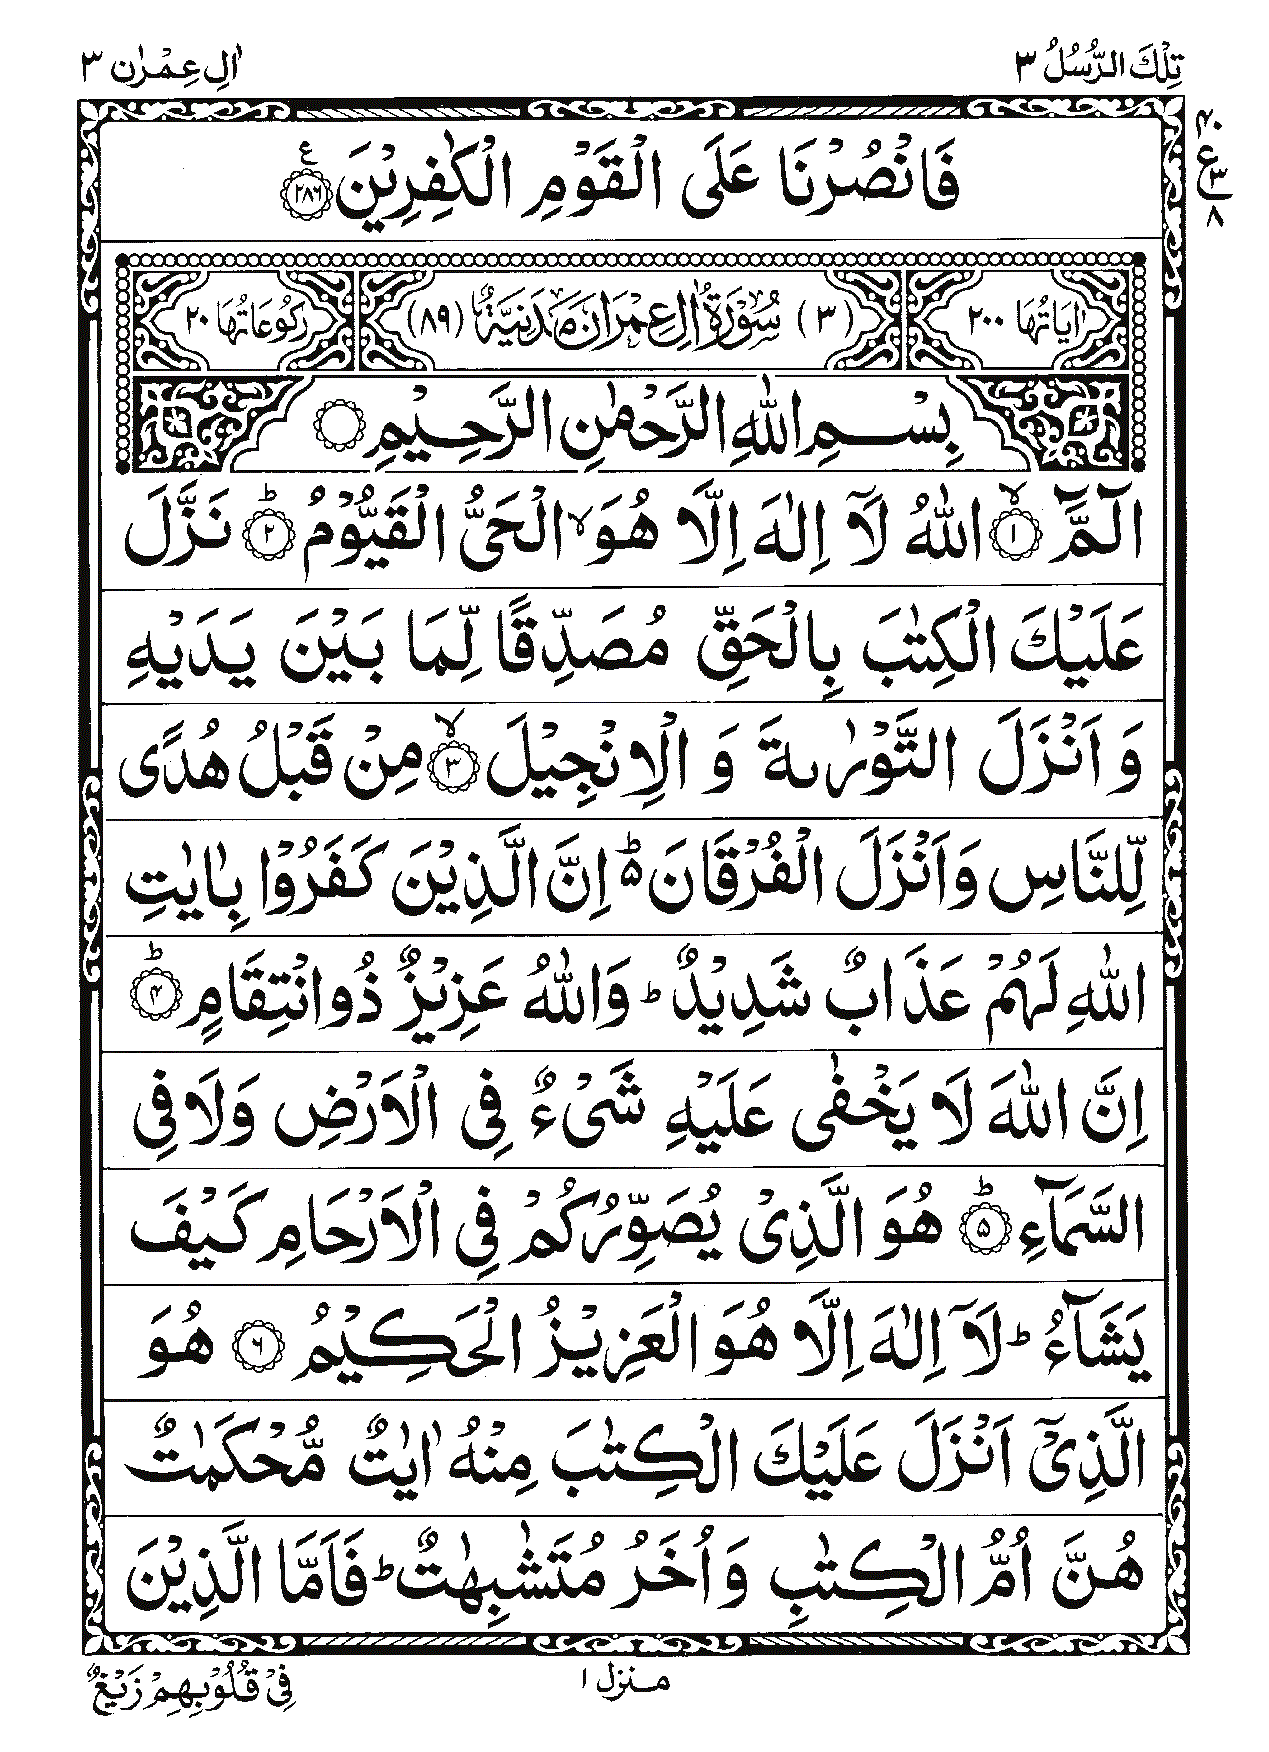 تِلْكَ الرُّسُلُ ٣
اٰلِ عِمْرٰن ٣
٤٠
ع
٣
٨
فَانْصُرْنَا عَلَى الْقَوْمِ الْكٰفِرِيْنَ ۧ ﴿٢٨٦﴾
اٰيَاتُهَا ٢٠٠
(٣) سُوْرَةُ اٰلِ عِمْرَانَ مَدَنِيَّةٌ (٨٩)
رُكُوْعَاتُهَا ٢٠
بِسْمِ اللّٰهِ الرَّحْمٰنِ الرَّحِيْمِ
الٓمَّٓ ۙ﴿١﴾ اللّٰهُ لَآ اِلٰهَ اِلَّا هُوَ ۙ الْحَىُّ الْقَيُّوْمُ ؕ﴿٢﴾ نَزَّلَ
عَلَيْكَ الْكِتٰبَ بِالْحَقِّ مُصَدِّقًا لِّمَا بَيْنَ يَدَيْهِ
وَ اَنْزَلَ التَّوْرٰىةَ وَ الْاِنْجِيْلَ ۙ﴿٣﴾ مِنْ قَبْلُ هُدًى
لِّلنَّاسِ وَاَنْزَلَ الْفُرْقَانَ ؕ۵ اِنَّ الَّذِيْنَ كَفَرُوْا بِاٰيٰتِ
اللّٰهِ لَهُمْ عَذَابٌ شَدِيْدٌ ؕ وَاللّٰهُ عَزِيْزٌ ذُوانْتِقَامٍ ؕ﴿۴﴾
اِنَّ اللّٰهَ لَا يَخْفٰى عَلَيْهِ شَىْءٌ فِى الْاَرْضِ وَلَا فِى
السَّمَآءِ ؕ﴿۵﴾ هُوَ الَّذِىْ يُصَوِّرُكُمْ فِى الْاَرْحَامِ كَيْفَ
يَشَآءُ ؕ لَآ اِلٰهَ اِلَّا هُوَ الْعَزِيْزُ الْحَكِيْمُ ﴿٦﴾ هُوَ
الَّذِىْٓ اَنْزَلَ عَلَيْكَ الْكِتٰبَ مِنْهُ اٰيٰتٌ مُّحْكَمٰتٌ
هُنَّ اُمُّ الْكِتٰبِ وَاُخَرُ مُتَشٰبِهٰتٌ ؕ فَاَمَّا الَّذِيْنَ
منزل ١
فِىْ قُلُوْبِهِمْ زَيْغٌ